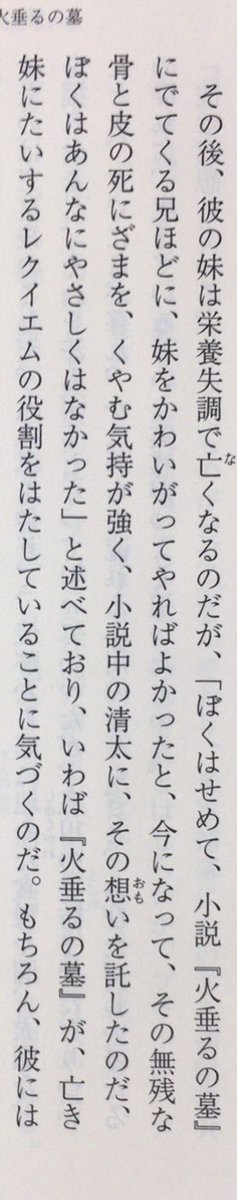 火垂るの墓
その後、彼の妹は栄養失調で亡くなるのだが、「ぼくはせめて、小説『火垂るの墓』
にでてくる兄ほどに、妹をかわいがってやればよかったと、今になって、その無残な
骨と皮の死にざまを、くやむ気持が強く、小説中の清太に、その想いを託したのだ、
ぼくはあんなにやさしくはなかった」と述べており、いわば『火垂るの墓』が、亡き
妹にたいするレクイエムの役割をはたしていることに気づくのだ。もちろん、彼には